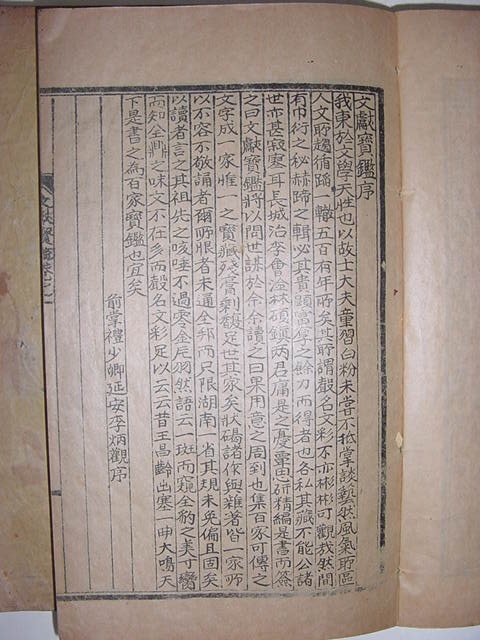 文獻寶鑑序
我東於文學天性也以故士大夫童習白粉未嘗不抵掌談藝然風氣所區
人文所趨循蹈一轍五百有年所矣其所謂聲名文彩不亦彬彬可觀哉然間
有巾衍之秘赫蹄之輯必其貴顯富厚之餘力而得者也各私其藏不能公諸
世亦甚寂寥耳長城治李會淦林碩鎭丙君痛是之思硏精編是書而簽
之曰文獻寶鑑將以問世謀於余余讀之曰果用意之周到也集百家可傳之
文字成一家惟一之寶藏殘膏剩馥足世其家矣狀碣諸作與雜著皆一家所
以不容不敬誦者爾所恨者未逼全邦而只限湖南一省其規未免偏且固矣
以讀者言之其祖先之咳唾不過零金片羽然語云一斑而窺全豹之美丁臠
而知全鼎之味文不在多而聲名文彩足以云云昔王昌齡出塞一曲大鳴天
下是書之為百家寶鑑也宜矣
前掌禮少卿延安李炳觀序
文獻寶鑑卷之一